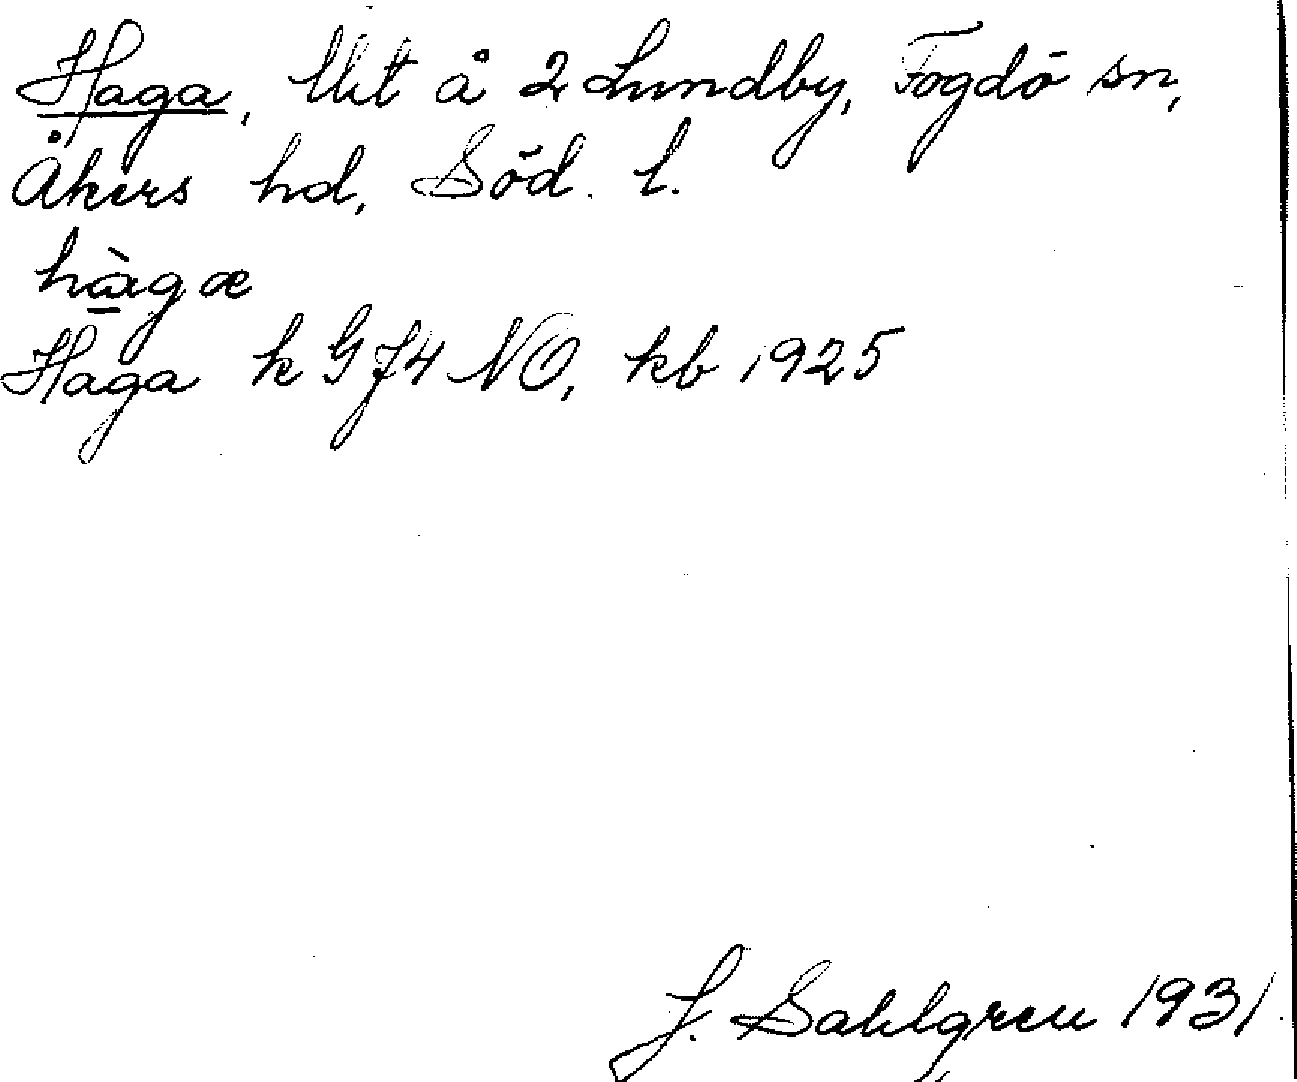 Haga, lht å 2 Lundby, Fogdö sn,
Åkers hd, Söd. l.
hàgæ
Haga k G J4 NO, kb 1925
J. Sahlgren 1931